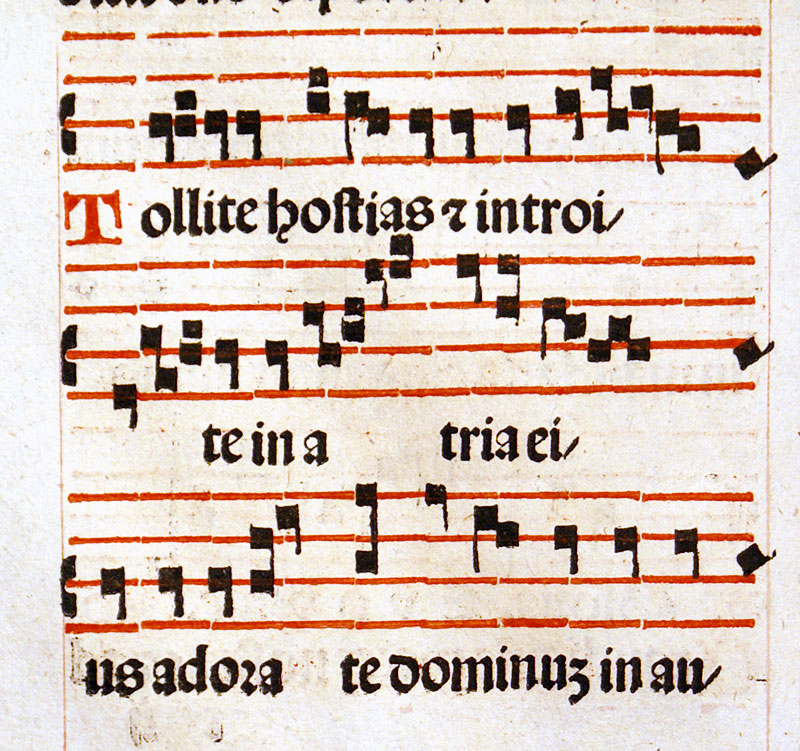 Tollite hostias ⁊ introi/
te in a tria ei/
us adora te dominuz in au/